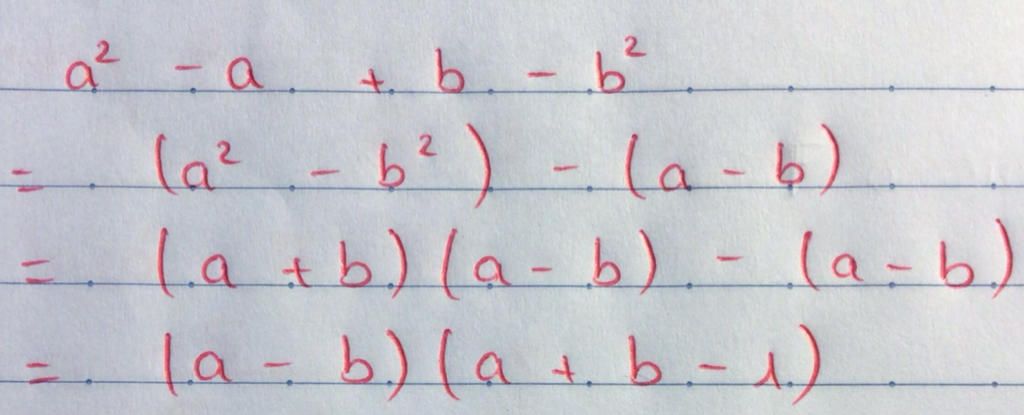 a² - a + b - b²
= (a² - b²) - (a - b)
= (a + b)(a - b) - (a - b)
= (a - b)(a + b - 1)